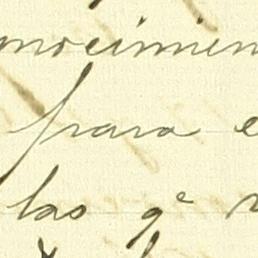 nocimien
para e
las qe